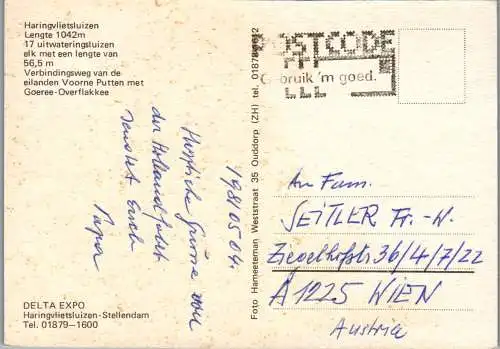 Haringvlietsluizen
Lengte 1042m
17 uitwateringsluizen
elk met een lengte van
56,5 m
Verbindingsweg van de
eilanden Voorne Putten met
Goeree-Overflakkee
DELTA EXPO
Haringvlietsluizen-Stellendam
Tel. 01879-1600
19810504.
Herzliche Grüsse von
der Hollandfahrt
sendet Euch
Papa
Foto Hameeteman Weststraat 35 Ouddorp (ZH) tel. 01878-
POSTCODE
Gebruik 'm goed.
An Fam.
SEITLER Fr.-W.
Ziegelhofstr 36/4/7/22
A 1225 WIEN
Austria